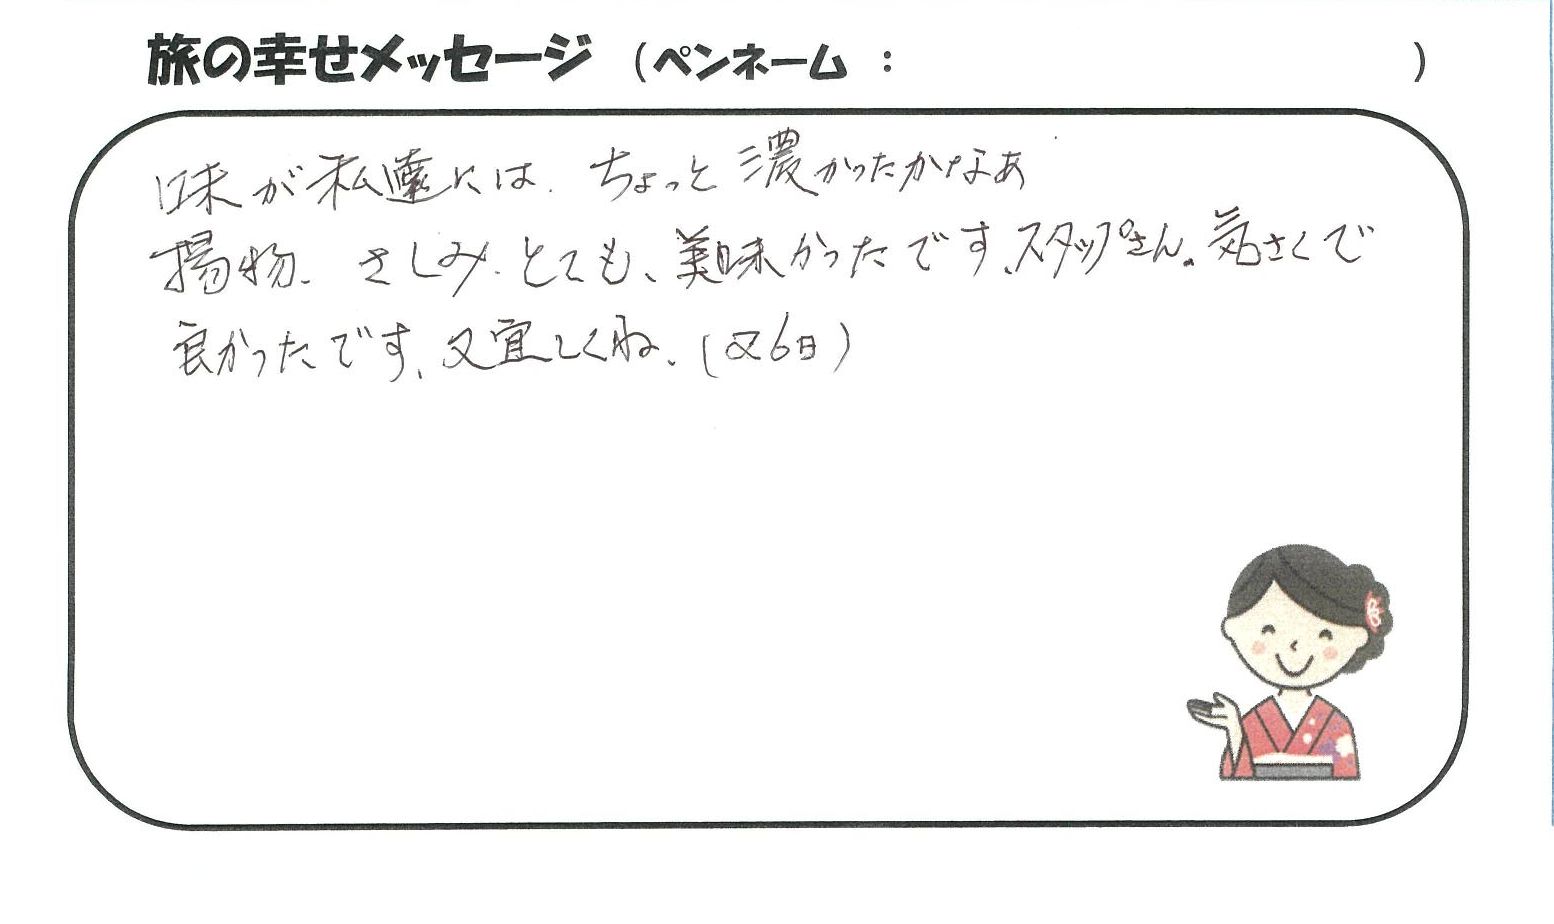 旅の幸せメッセージ (ペンネーム: )
味が私達には、ちょっと濃かったかなあ
揚物、さしみ、とても、美味かったです、スタップさん。気さくで
良かったです、又宜しくね、(又6日)